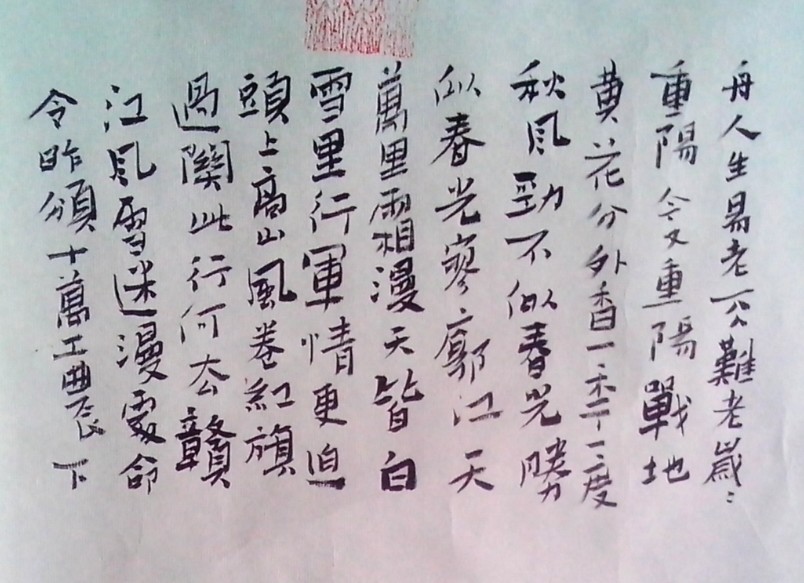 舟人生易老天難老歲〻
重陽今又重陽戰地
黄花分外香一年一度
秋風勁不似春光勝
似春光寥廓江天
萬里霜漫天皆白
雪里行軍情更迫
頭上高山風卷紅旗
過關此行何去贛
江風雪迷漫處命
令昨頒十萬工農下